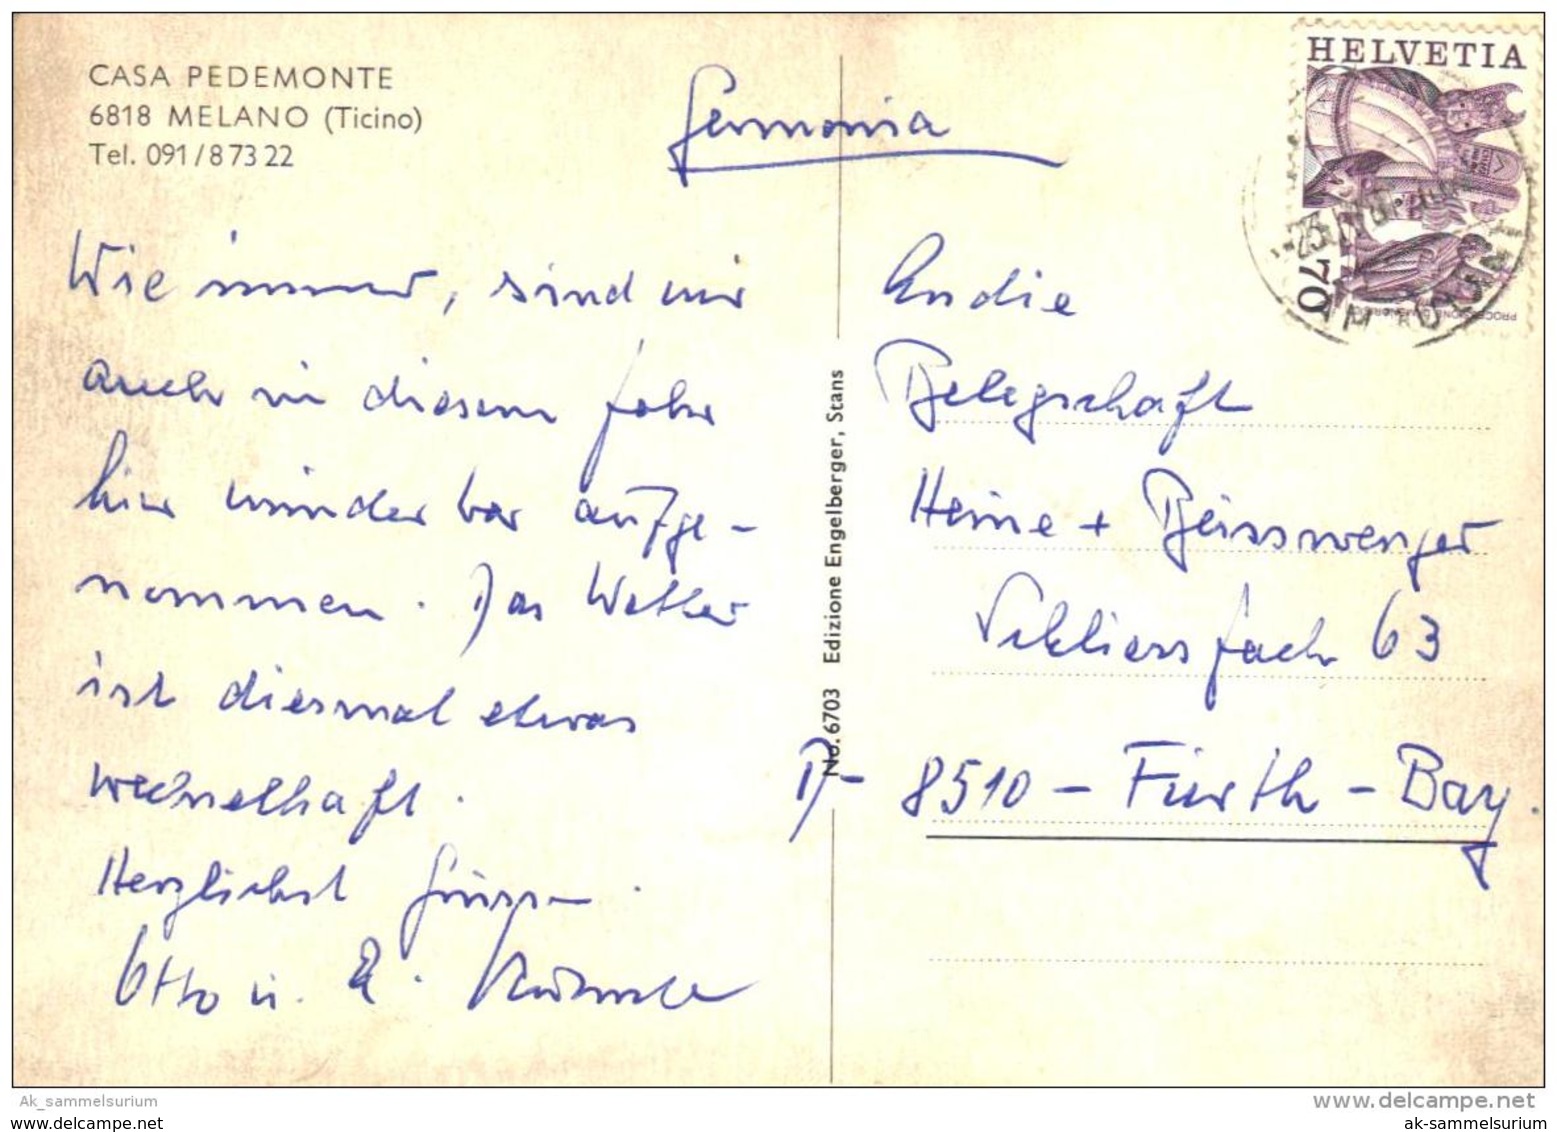 CASA PEDEMONTE
6818 MELANO (Ticino)
Tel. 091/8 73 22
Germania
HELVETIA
70
Wie immer, sind wir
auch in diesem Jahr
hier wunderbar aufge-
nommen. Das Wetter
ist diesmal etwas
wechselhaft.
Herzlichst
Otto u.
No. 6703 Edizione Engelberger, Stans
An die
Belegschaft
Heine + Beisswenger
Schliessfach 63
D- 8510 - Fürth - Bay.
Ak_sammelsurium
www.delcampe.net
www.delcampe.net
ak-sammelsurium